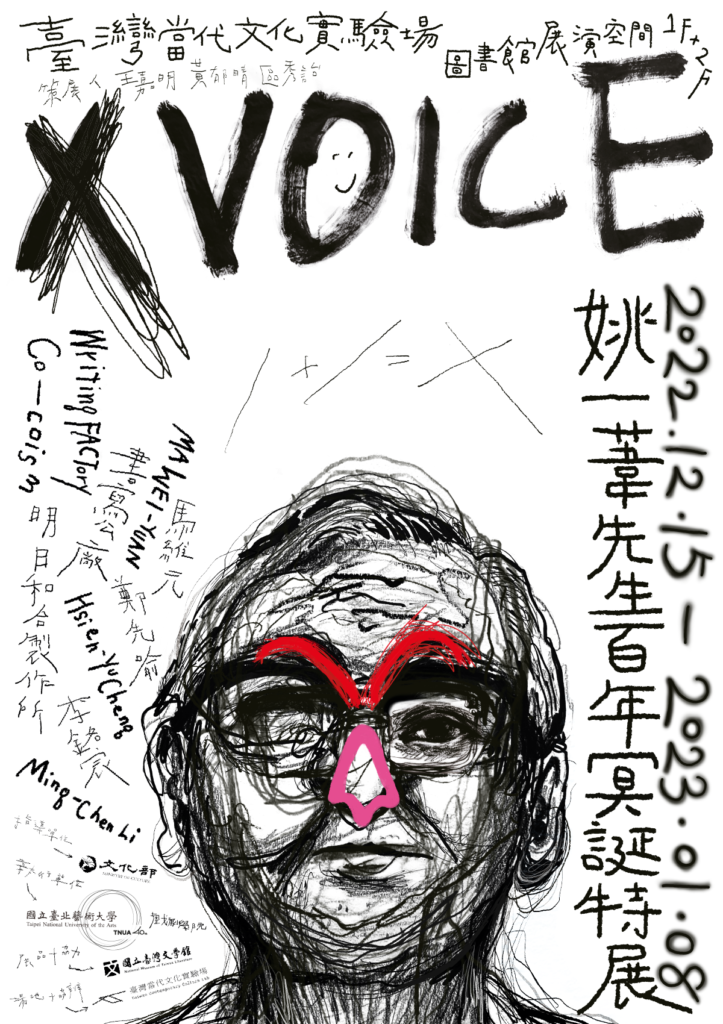 臺灣當代文化實驗場
圖書館展演空間 1F+2F
策展人 王嘉明 黃郁晴 區秀詒
X VOICE
1 + 1 = X
2022.12.15 — 2023.01.08
姚一葦先生百年冥誕特展
馬維元
MA WEI-YUAN
鄭先喻
Hsien-Yu Cheng
李銘宸
Ming-Chen Li
書寫公廠
Writing FACTory
明日和合製作所
Co-coism
指導單位
文化部
MINISTRY OF CULTURE
主辦單位
國立臺北藝術大學
Taipei National University of the Arts
TNUA 40th
展品協力
國立臺灣文學館
National Museum of Taiwan Literature
場地協辦
臺灣當代文化實驗場